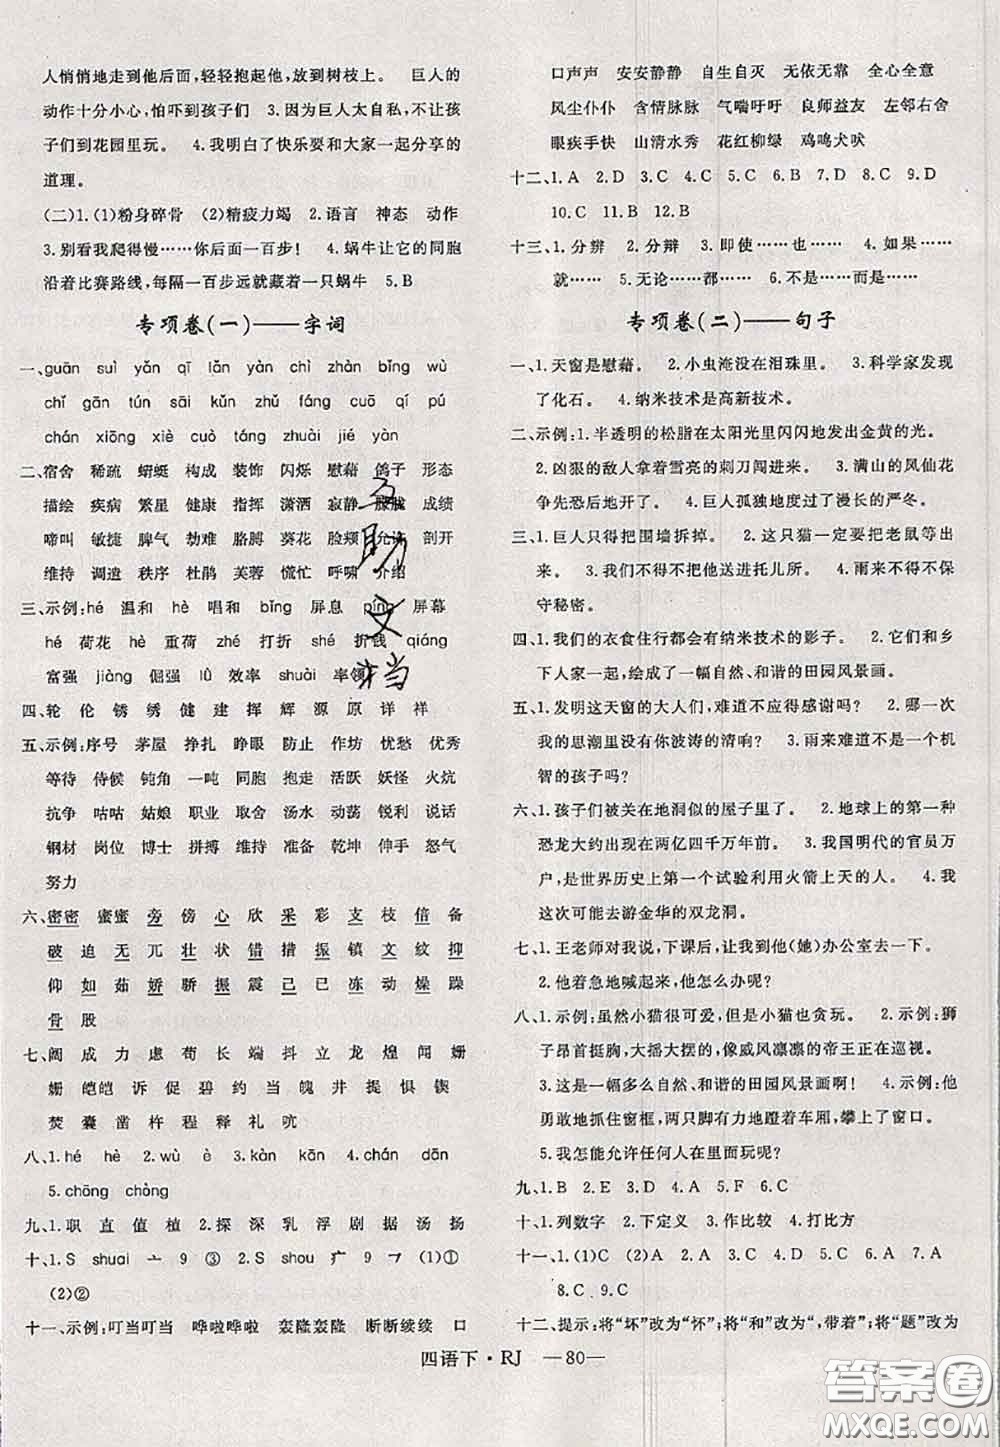 人悄悄地走到他后面,轻轻抱起他,放到树枝上。 巨人的
动作十分小心,怕吓到孩子们 3.因为巨人太自私,不让孩
子们到花园里玩。 4.我明白了快乐要和大家一起分享的
道理。
(二)1.(1)粉身碎骨 (2)精疲力竭 2.语言 神态 动作
3.别看我爬得慢……你后面一百步! 4.蜗牛让它的同胞
沿着比赛路线,每隔一百步远就藏着一只蜗牛 5.B
专项卷(一)——字词
一、guān suì yǎn qī lǎn yàn chì zhàn bǐng wù
chǐ gān tún sāi kǔn zhǔ fáng cuō qí pú
chán xiōng xiè cuò tāng zhuài jié yàn
二、宿舍 稀疏 蜻蜓 构成 装饰 闪烁 慰藉 鸽子 形态
描绘 疾病 繁星 健康 指挥 潇洒 寂静 朦胧 成绩
啼叫 敏捷 脾气 勃难 胳膊 葵花 脸颊 允许 剖开
维持 调遣 秩序 杜鹃 芙蓉 慌忙 呼啸 介绍
三、示例:hé 温和 hè 唱和 bǐng 屏息 píng 屏幕
hé 荷花 hè 重荷 zhé 打折 shé 折钱 qiáng
富强 jiàng 倔强 lǜ 效率 shuài 率领
四、轮 伦 锈 绣 健 建 挥 辉 源 原 详 祥
五、示例:序号 茅屋 挣扎 睁眼 防止 作坊 忧愁 优秀
等待 侍候 钝角 一吨 同胞 抱走 活跃 妖怪 火炕
抗争 咕咕 姑娘 职业 取舍 汤水 动荡 锐利 说话
钢材 岗位 博士 拼搏 维持 准备 乾坤 伸手 怒气
努力
六、密密 蜜蜜 旁 傍 心 欣 采 彩 支 枝 倍 备
破 迫 无 兀 壮 状 错 措 振 镇 文 纹 抑
仰 如 茹 娇 骄 振 震 己 已 冻 动 燥 躁
骨 股
七、阔 成 力 虑 苟 长 端 抖 立 龙 煌 闻 姗
姗 皑皑 诉 促 碧 约 当 魄 井 提 惧 锲
焚 囊 凿 杵 程 释 礼 吭
八、1.hé hè 2.wù è 3.kàn kān 4.chán dān
5.chōng chòng
九、1.职 直 值 植 2.探 深 乳 浮 剧 据 汤 扬
十、1.S shuai 亠 9 ③ 2.S shou 疒 9 (1)①
(2)②
十一、示例:叮当叮当 哗啦哗啦 轰隆轰隆 断断续续 口
口声声 安安静静 自生自灭 无依无靠 全心全意
风尘仆仆 含情脉脉 气喘吁吁 良师益友 左邻右舍
眼疾手快 山清水秀 花红柳绿 鸡鸣犬吠
十二、1.A 2.D 3.C 4.C 5.C 6.B 7.D 8.C 9.D
10.C 11.B 12.B
十三、1.分辨 2.分辩 3.即使……也…… 4.如果……
就…… 5.无论……都…… 6.不是……而是……
专项卷(二)——句子
一、1.天窗是慰藉。 2.小虫淹没在泪珠里。 3.科学家发现
了化石。 4.纳米技术是高新技术。
二、示例:1.半透明的松脂在太阳光里闪闪地发出金黄的光。
2.凶狠的敌人拿着雪亮的刺刀闯进来。 3.满山的凤仙花
争先恐后地开了。 4.巨人孤独地度过了漫长的严冬。
三、1.巨人只得把围墙拆掉。 2.这只猫一定要把老鼠等出
来。 3.我们不得不把他送进托儿所。 4.雨来不得不保
守秘密。
四、1.我们的衣食住行都会有纳米技术的影子。 2.它们和乡
下人家一起,绘成了一幅自然、和谐的田园风景画。
五、1.发明这天窗的大人们,难道不应得感谢吗? 2.哪一次
我的思潮里没有你波涛的清响? 3.雨来难道不是一个机
智的孩子吗?
六、1.孩子们被关在地洞似的屋子里了。 2.地球上的第一种
恐龙大约出现在两亿四千万年前。 3.我国明代的官员万
户,是世界历史上第一个试验利用火箭上天的人。 4.我
这次可能去游金华的双龙洞。
七、1.王老师对我说,下课后,让我到他(她)办公室去一下。
2.他着急地喊起来,他怎么办呢?
八、1.示例:虽然小猫很可爱,但是小猫也贪玩。 2.示例:狮
子昂首挺胸,大摇大摆的,像威风凛凛的帝王正在巡视。
3.这是一幅多么自然、和谐的田园风景画啊! 4.示例:他
勇敢地抓住窗框,两只脚有力地蹬着车厢,攀上了窗口。
5.我怎能允许任何人在里面玩呢?
九、1.B 2.E 3.D 4.A 5.F 6.C
十、1.列数字 2.下定义 3.作比较 4.打比方
十一、1.(1)C (2)A 2.A 3.C 4.B 5.C 6.A 7.A
8.C 9.C
十二、提示:将“坏”改为“怀”;将“和”改为“,带着”;将“题”改为
四语下·RJ —80—
互助文档
答案圈
MXQE.COM